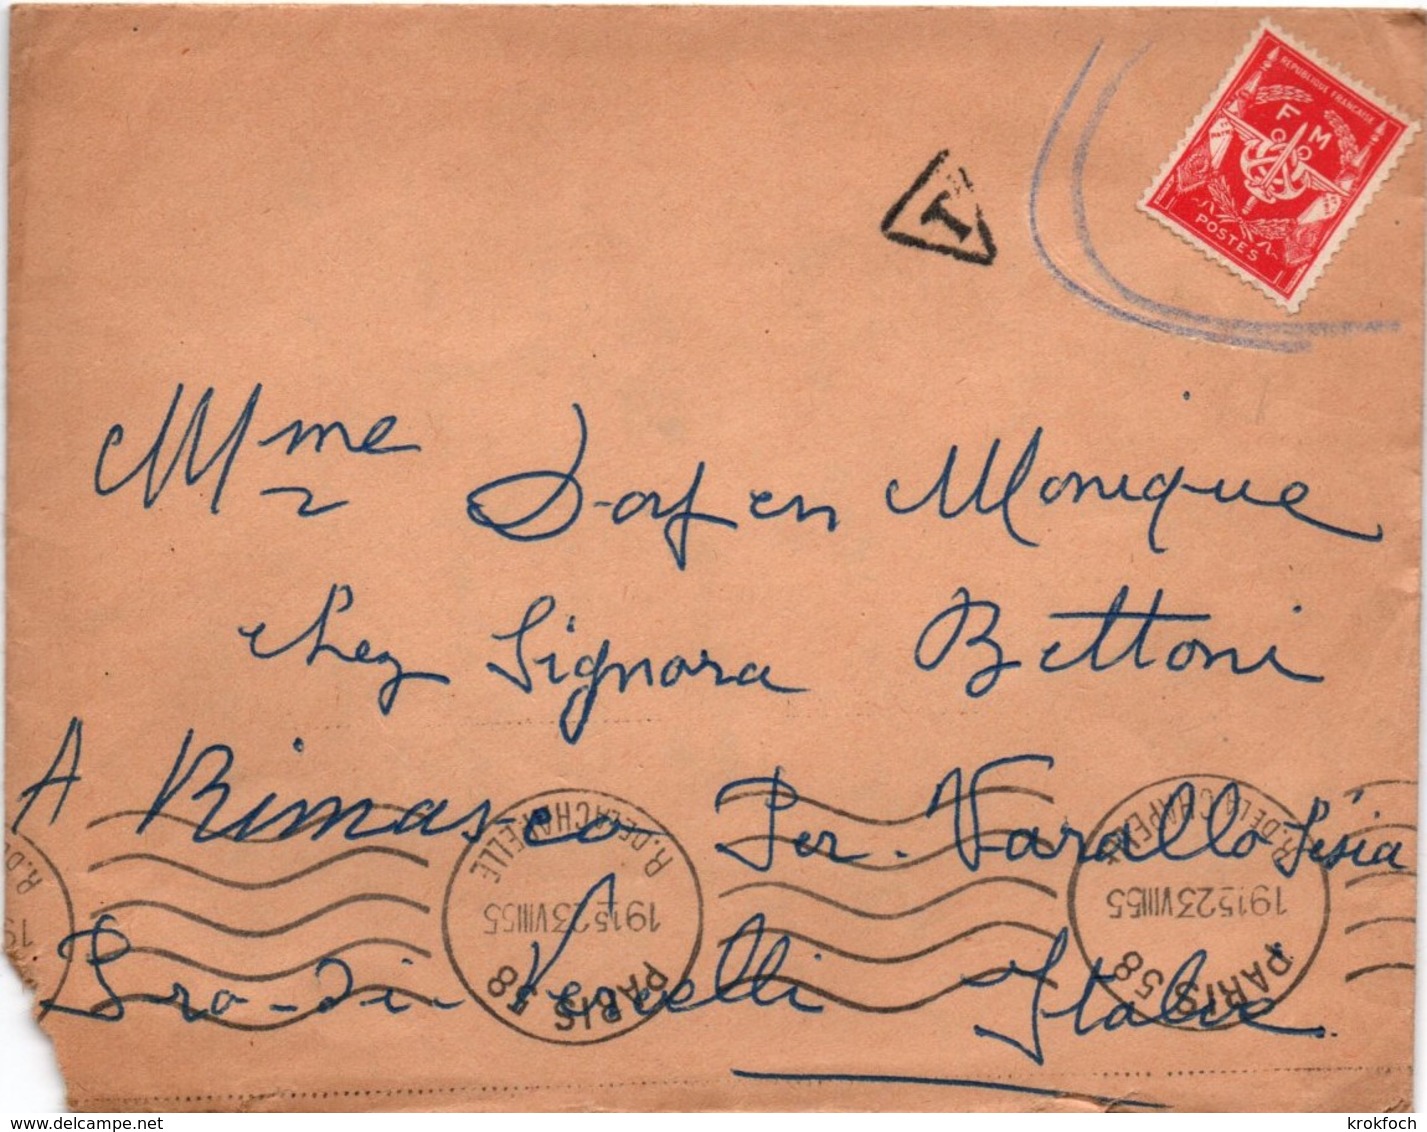 REPUBLIQUE FRANCAISE
F M
POSTES
T
Mme Dorfen Monique
chez Signora Bettoni
A Rimasco Per. Varallo Sesia
Pro-di-Vercelli Italie
R. DE LA CHAPELLE
1915 23 VIII 55
PARIS 58
R. DE LA CHAPELLE
1915 23 VIII 55
PARIS 58
R. DE
19
www.delcampe.net
krokfoch